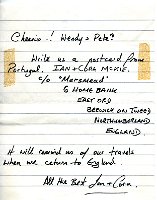 Cheerio! Wendy + Pete?
Write us a postcard from
Portugal. IAN + CORA
c/o "Marsmead"
5 HOME BANK
EAST ORD
BERWICK ON TWEED
NORTHUMBERLAND
ENGLAND.
It will remind us of our travels
when we return to England.
All the Best Ian + Cora.